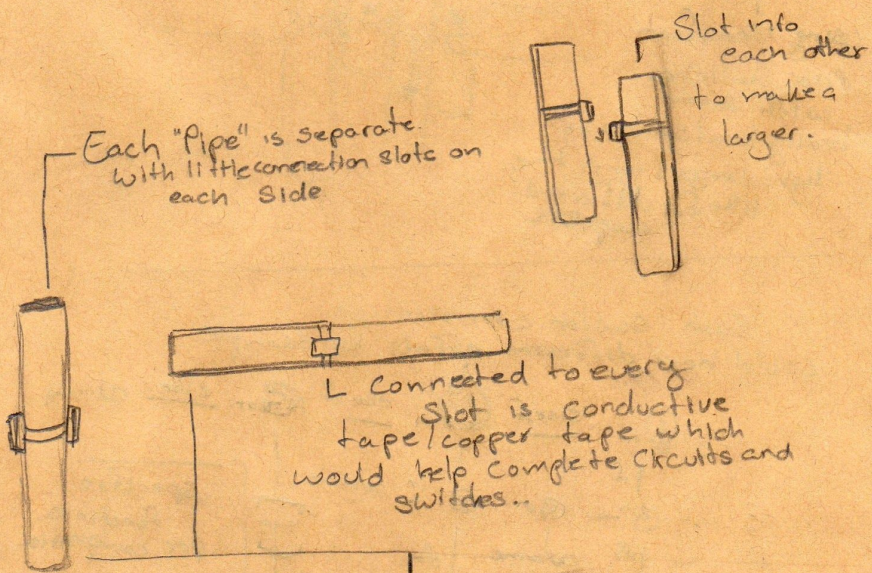 Each "Pipe" is separate.
with little connection slots on
each side
Slot into
each other
to make a
larger.
Connected to every
Slot is conductive
tape/copper tape which
would help complete Circuits and
switches..